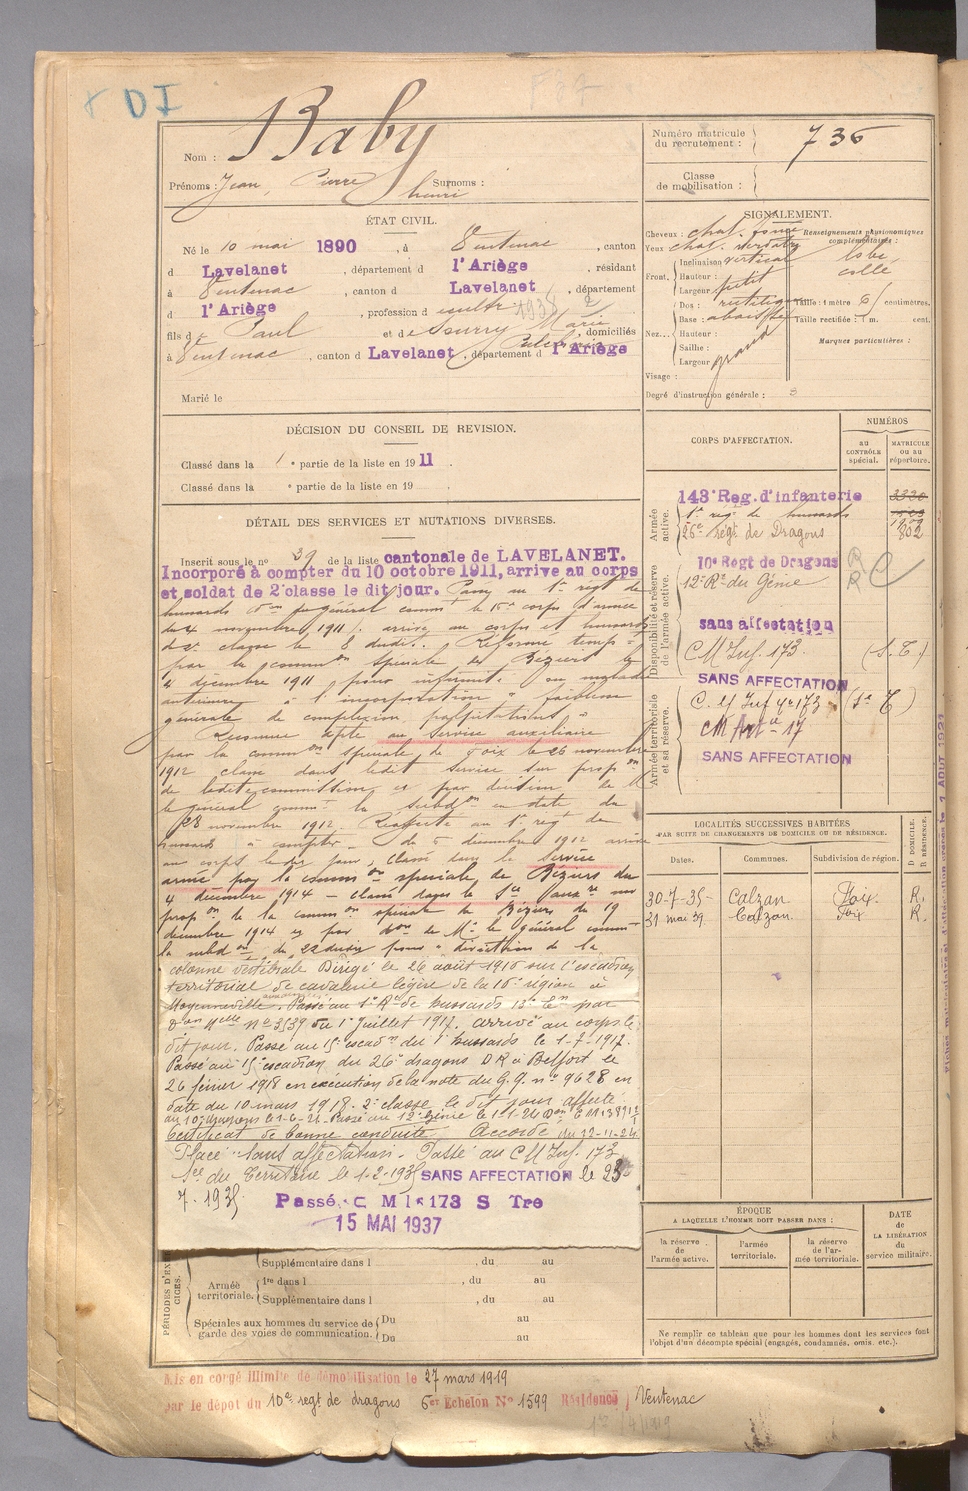 DI
Nom : Baby
Prénoms : Jean, Pierre henri Surnoms :
Numéro matricule du recrutement : 736
Classe de mobilisation :
ÉTAT CIVIL.
Né le 10 mai 1890, à Ventenac, canton
d Lavelanet, département d l'Ariège, résidant
à Ventenac, canton d Lavelanet, département
d l'Ariège, profession d cultr
fils de Paul et de Marie domiciliés
à Ventenac, canton d Lavelanet, département d l'Ariège
Marié le
SIGNALEMENT.
Cheveux : chat. foncé
Yeux chat. verdatre
Front. Inclinaison vertical
Hauteur : petit
Largeur
Nez... Dos : rectiligne
Base : abaissée
Hauteur :
Saillie :
Largeur grand
Visage :
Degré d'instruction générale : 3
Renseignements physionomiques complémentaires :
lobe
collé
Taille : 1 mètre 61 centimètres.
Taille rectifiée : 1 m. cent.
Marques particulières :
DÉCISION DU CONSEIL DE REVISION.
Classé dans la 1e partie de la liste en 1911.
Classé dans la e partie de la liste en 19 .
DÉTAIL DES SERVICES ET MUTATIONS DIVERSES.
Inscrit sous le no 39 de la liste cantonale de LAVELANET.
Incorporé à compter du 10 octobre 1911, arrive au corps
et soldat de 2e classe le dit jour. Passé au 1er régt de
hussards Don du général commt le 16e corps d'armée
du 4 novembre 1911. arrivé au corps et hussard
de 2e classe le 8 dudit. Réformé tempre
par la common spéciale de Béziers le
4 décembre 1911 pour infirmité ou maladie
antérieure à l'incorporation "faiblesse
générale de complexion, palpitations"
Reconnu apte au service auxiliaire
par la common spéciale de Foix le 26 novembre
1912 classé dans ledit service sur propon
de ladite commission et par décision de M
le général commt la subdon en date du
28 novembre 1912. Réaffecté au 1er régt de
hussards à compter du 5 décembre 1912 arrivé
au corps le dit jour, classé dans le service
armé par la common spéciale de Béziers du
4 décembre 1914 — classé dans le Sce auxre sur
propon de la common spéciale de Béziers du 19
décembre 1914 et par don de Mr le général commt
la subdon du 22 dudit pour "déviation de la
colonne vertébrale Dirigé le 26 août 1916 sur l'escadron
territorial de cavalerie légère de la 16e région à
Moyenneville. Passé au 1er Rt de hussards 13e En par
Don Mlle No 3539 du 1er Juillet 1917. arrivé au corps le
dit jour. Passé au 15e escadn du 1er hussards le 1-7-1917.
Passé au 15e escadron du 26e dragons D R à Belfort le
26 février 1918 en exécution de la note du G.Q. no 9628 en
date du 10 mars 1918. 2e classe le dit jour affecté
au 10e dragons le 1-6-21. Passé au 12e Génie le 1-1-24
Certificat de bonne conduite Accordé du 12-11-24
Placé "sans affectation. Passé au CM Inf. 173
Sce du Territoire le 1-2-1935 SANS AFFECTATION le 23
7-1935
Passé C M I 173 S Tre
15 MAI 1937
CORPS D'AFFECTATION.
NUMÉROS
au CONTRÔLE spécial.
MATRICULE ou au répertoire.
Armée active.
143e Reg. d'infanterie 3330
1er regt de hussards
26e régt de Dragons 802
Disponibilité et réserve de l'armée active.
10e Regt de Dragons R
12e Rt du Génie R
sans affectation
CM Inf. 173 (S.T.)
SANS AFFECTATION
Armée territoriale et sa réserve.
C. M Inf 173 (Sce T)
CM Artie 17
SANS AFFECTATION
LOCALITÉS SUCCESSIVES HABITÉES
PAR SUITE DE CHANGEMENTS DE DOMICILE OU DE RÉSIDENCE.
Dates. Communes. Subdivision de région. D DOMICILE. R RÉSIDENCE.
30-7-35 Calzan Foix. R.
21 mai 39 Calzan Foix R.
ÉPOQUE
A LAQUELLE L'HOMME DOIT PASSER DANS :
la réserve de l'armée active.
l'armée territoriale.
la réserve de l'armée territoriale.
DATE de LA LIBÉRATION du service militaire.
Ne remplir ce tableau que pour les hommes dont les services font
l'objet d'un décompte spécial (engagés, condamnés, omis, etc.).
PÉRIODES D'EXERCICES.
Armée territoriale.
Supplémentaire dans l , du au
1re dans l , du au
Supplémentaire dans l , du au
Spéciales aux hommes du service de garde des voies de communication.
Du au
Du au
Mis en congé illimité de démobilisation le 27 mars 1919
par le dépôt du 10e regt de dragons 6er Echelon No 1599 Résidence Ventenac